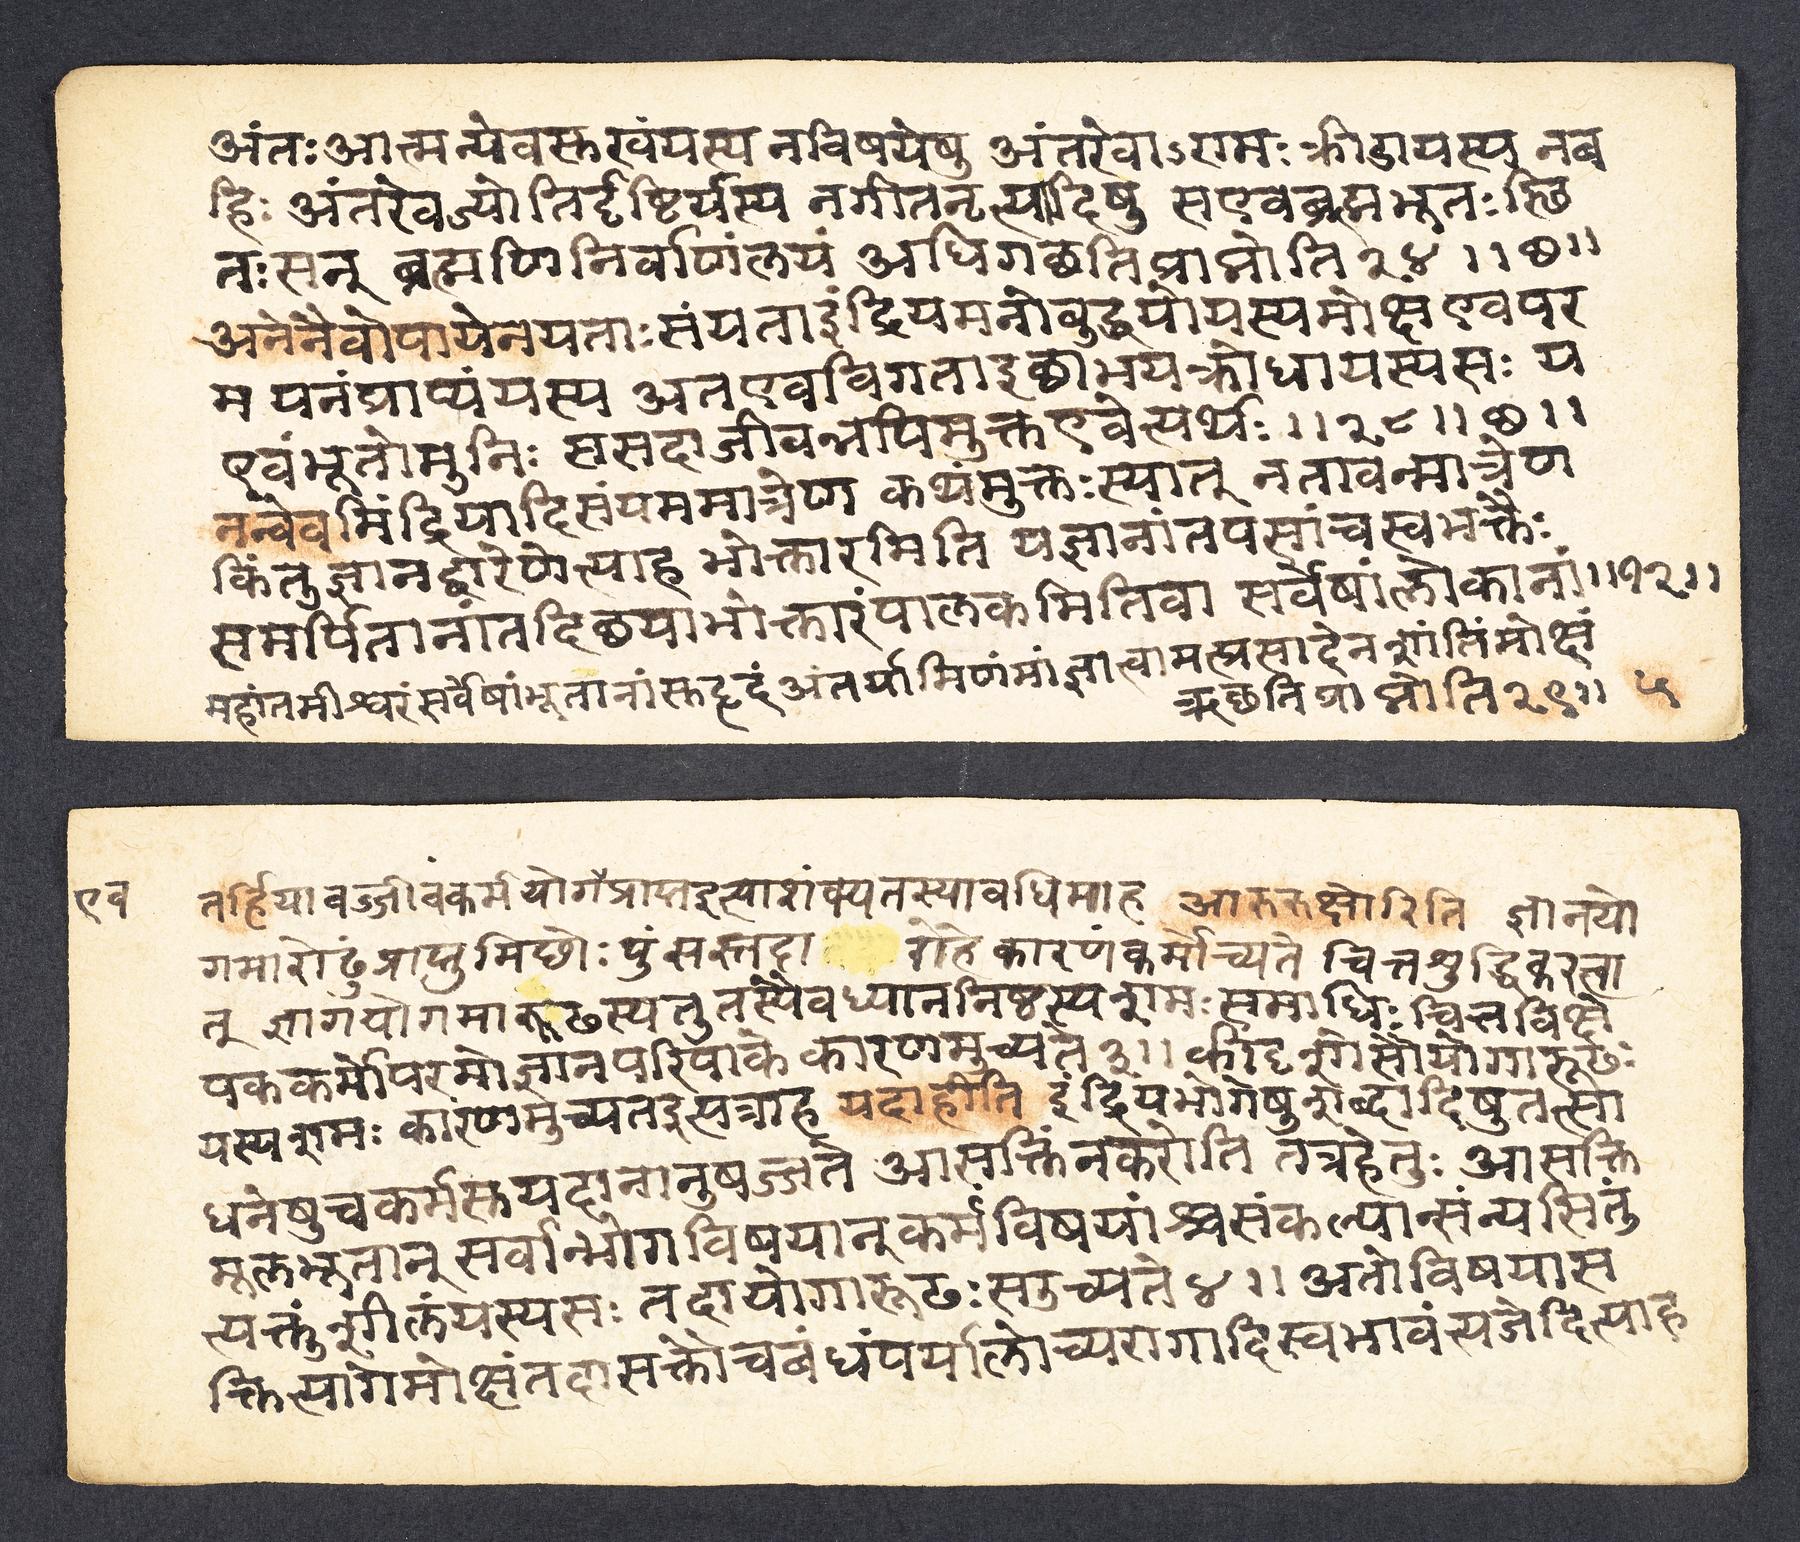 अंतःआत्मन्येवसुखंयस्य नविषयेषु अंतरेवाऽरामः क्रीडायस्य नब
हिः अंतरेवज्योतिर्दृष्टिर्यस्य नगीतनृत्यादिषु सएवब्रह्मभूतःस्थि
तःसन् ब्रह्मणिनिर्वाणंलयं अधिगछतिप्राप्नोति२४।।छ।।
अनेनैवोपायेनयताःसंयताइंद्रियमनोबुद्धयोयस्यमोक्षएवपर
मयनंप्राप्यंयस्य अतएवविगताइछाभयक्रोधायस्यसः य
एवंभूतोमुनिः ससदाजीवन्नपिमुक्तएवेत्यर्थः।।२८।।छ।।
नन्वेवमिंद्रियादिसंयममात्रेण कथंमुक्तःस्यात् नतावन्मात्रेण
किंतुज्ञानद्वारेणेत्याह भोक्तारमिति यज्ञानांतपसांचस्वभक्तैः
समर्पितानांतदिछयाभोक्तारंपालकमितिवा सर्वेषांलोकानां।।१२।।
महांतमीश्वरंसर्वेषांभूतानांसुहृदंअंतर्यामिणंमांज्ञात्वामत्प्रसादेनशांतिंमोक्षं
ऋछतिप्राप्नोति२९।। ५
एव तर्हियावज्जीवंकर्मयोगप्राप्तइत्याशंक्यतस्यावधिमाह आरुरुक्षोरिति ज्ञानयो
गमारोढुंप्राप्तुमिछोःपुंसस्तदा रोहेकारणंकर्मोच्यते चित्तशुद्धिकरत्वा
त् ज्ञागंयोगमारूढस्यतुतस्यैवध्याननिष्ठस्यशमःसमाधिःचित्तविक्षे
पककर्मोपरमोज्ञानपरिपाके कारणमुच्यते३।। कीदृशोसौयोगारूढः
यस्यशमः कारणमुच्यतइत्यत्राह यदाहीति इंद्रियभोगेषुशब्दादिषुतत्सा
धनेषुचकर्मसुयदानानुषज्जते आसक्तिंनकरोति तत्रहेतुः आसक्ति
मूलभूतान् सर्वान्भोगविषयान्कर्मविषयांश्चसंकल्पान्संन्यसितुं
त्यक्तुंशीलंयस्यसः तदायोगारूढःसउच्यते४।। अतोविषयास
क्तित्यागेमोक्षंतदासक्तौचबंधंपर्यालोच्यरागादिस्वभावंत्यजेदित्याह